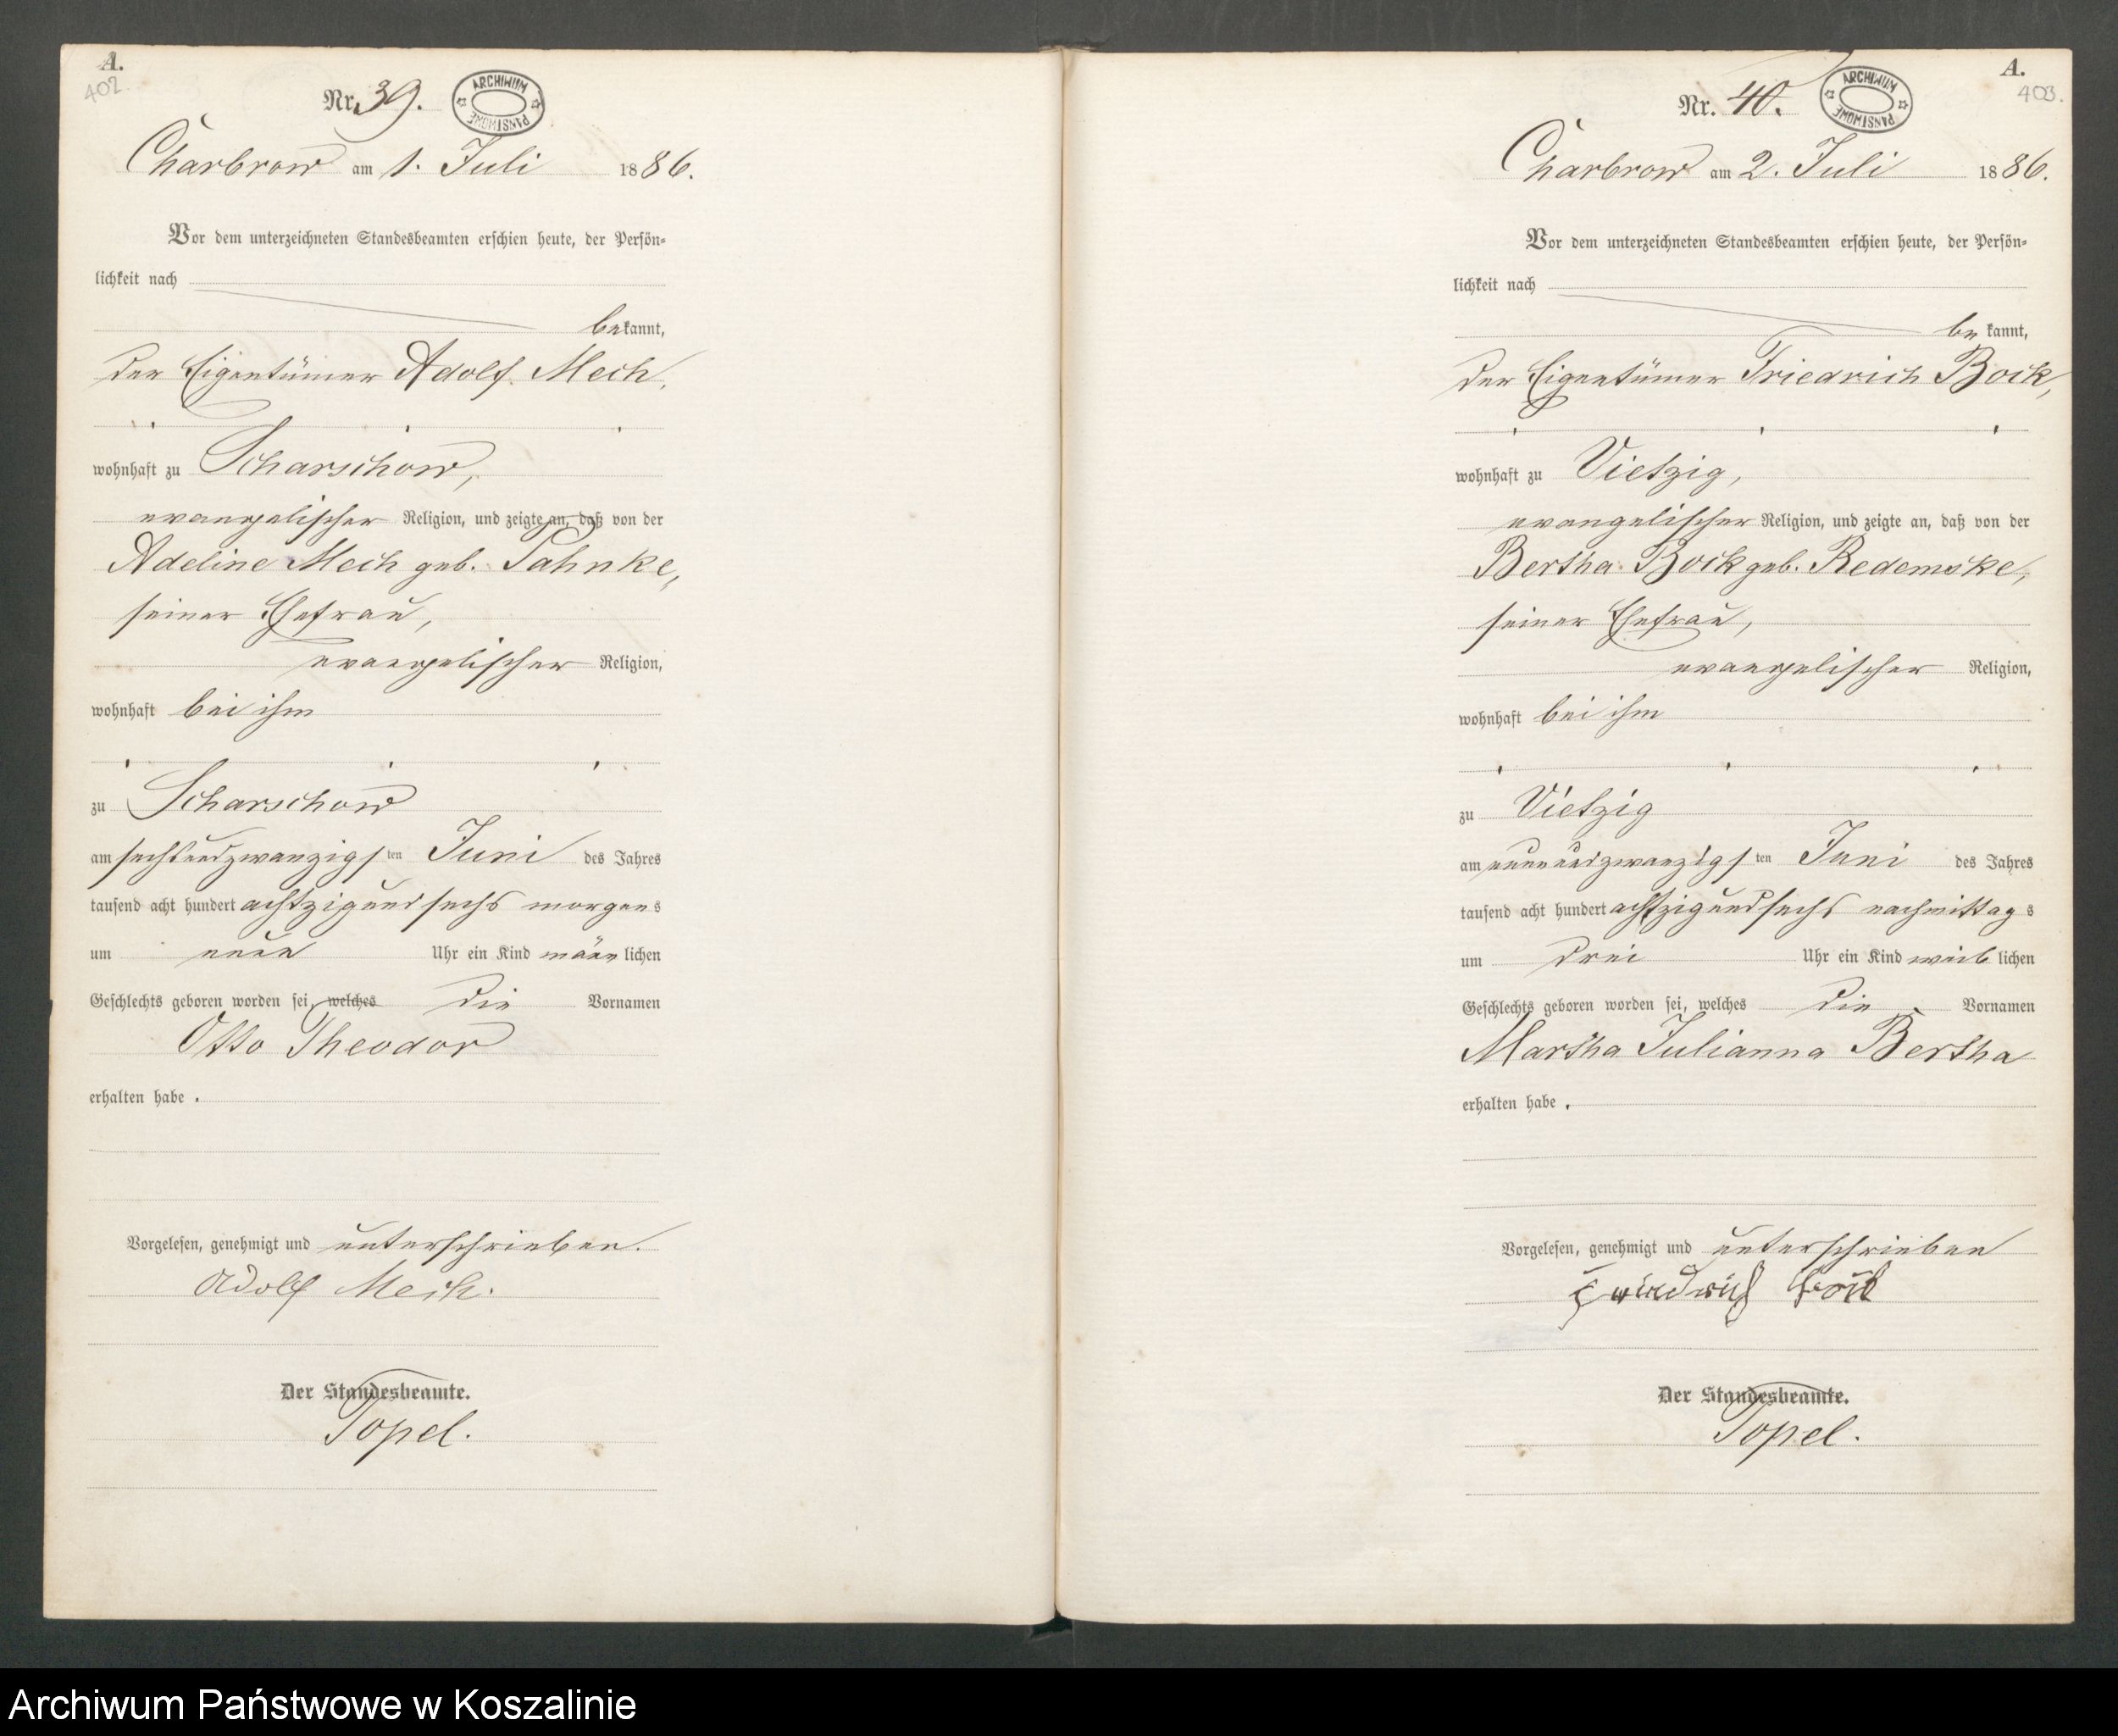 A.
402.
Nr. 39.
ARCHIWUM PAŃSTWOWE
Charbrow am 1. Juli 1886.
Vor dem unterzeichneten Standesbeamten erschien heute, der Persön-
lichkeit nach
bekannt,
der Eigentümer Adolf Mech,
wohnhaft zu Scharschow,
evangelischer Religion, und zeigte an, daß von der
Adeline Mech geb. Pahnke,
seiner Ehefrau,
evangelischer Religion,
wohnhaft bei ihm
zu Scharschow
am sechsundzwanzigsten Juni des Jahres
tausend acht hundert achtzigundsechs morgens
um neun Uhr ein Kind männlichen
Geschlechts geboren worden sei, welches die Vornamen
Otto Theodor
erhalten habe.
Vorgelesen, genehmigt und unterschrieben.
Adolf Mech.
Der Standesbeamte.
Topel.
A.
403.
Nr. 40.
ARCHIWUM PAŃSTWOWE
Charbrow am 2. Juli 1886.
Vor dem unterzeichneten Standesbeamten erschien heute, der Persön-
lichkeit nach
bekannt,
der Eigentümer Friedrich Bock,
wohnhaft zu Vietzig,
evangelischer Religion, und zeigte an, daß von der
Bertha Bock geb. Redemske,
seiner Ehefrau,
evangelischer Religion,
wohnhaft bei ihm
zu Vietzig
am neunundzwanzigsten Juni des Jahres
tausend acht hundert achtzigundsechs nachmittags
um drei Uhr ein Kind weiblichen
Geschlechts geboren worden sei, welches die Vornamen
Martha Julianna Bertha
erhalten habe.
Vorgelesen, genehmigt und unterschrieben
Friedrich Bock
Der Standesbeamte.
Topel.
Archiwum Państwowe w Koszalinie